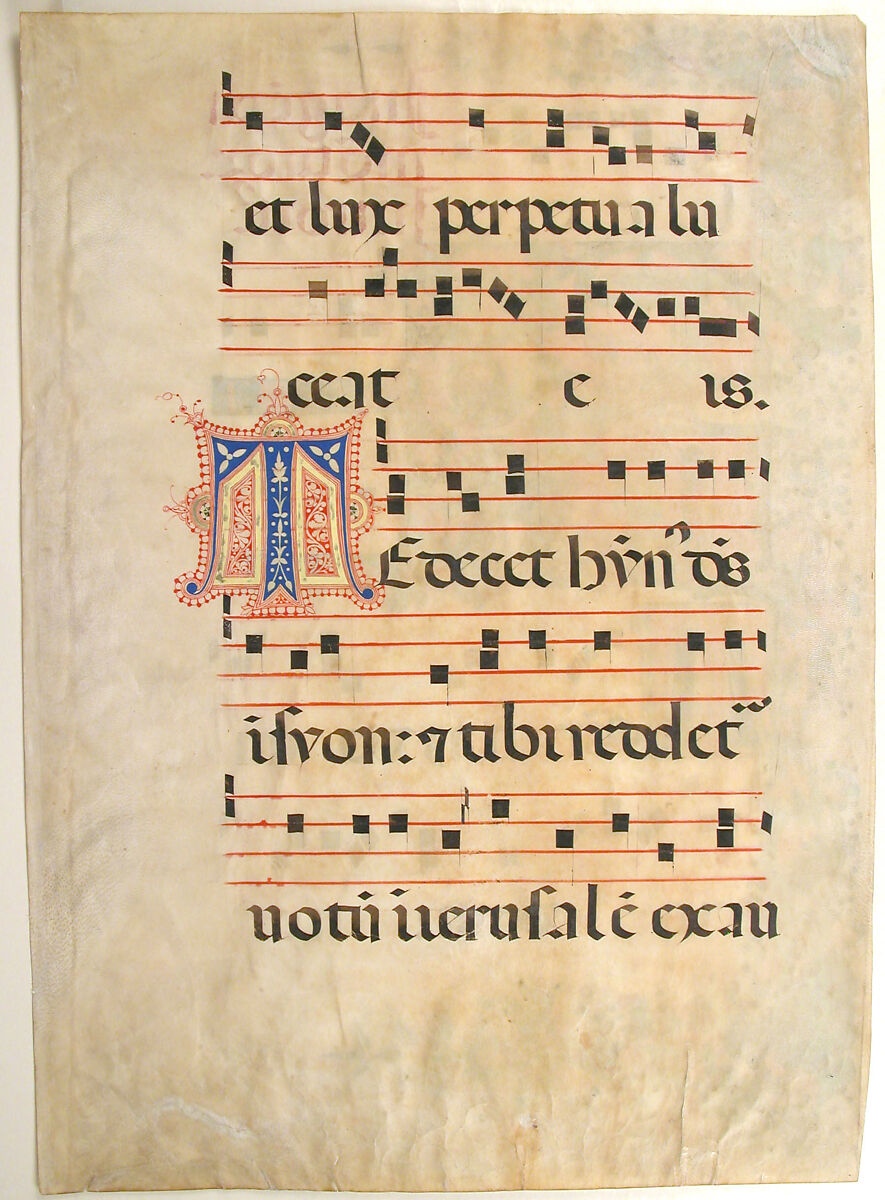 et lux perpetua lu
ceat e is.
TE decet hỹn⁹ ds̄
i syon: ⁊ tibi reddet᷑
uotū ī ierusalē exau